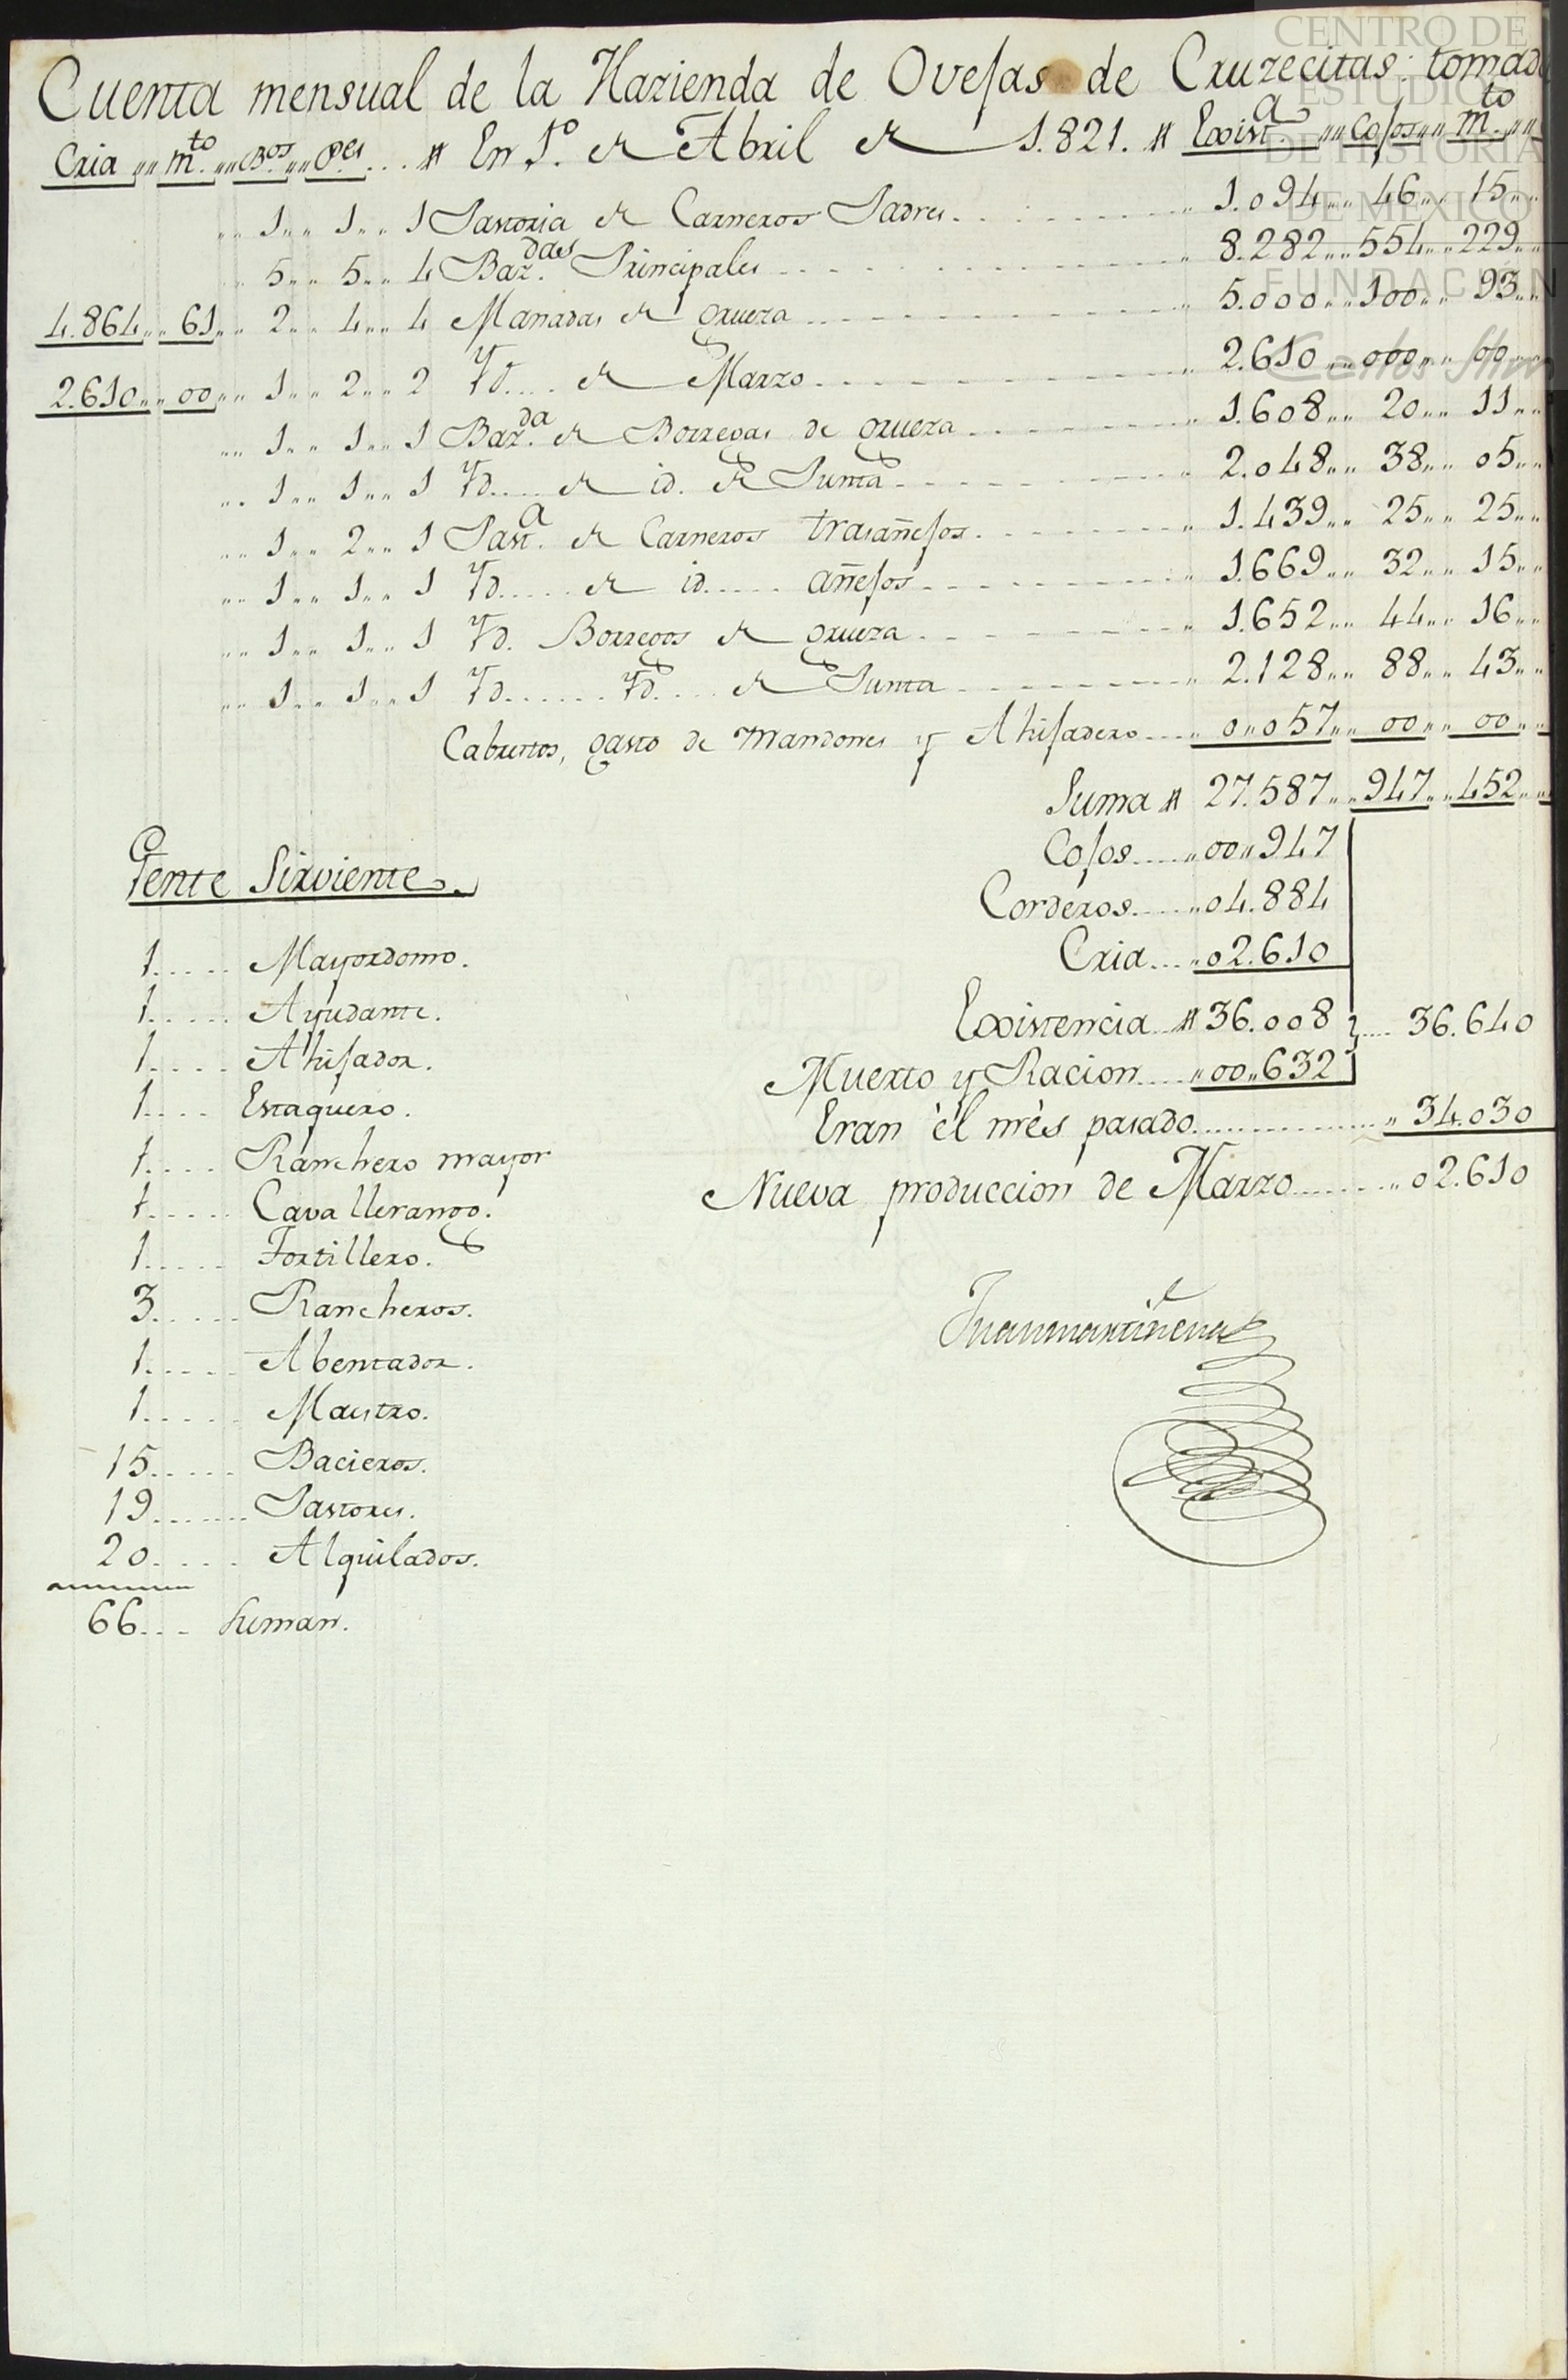 CENTRO DE
ESTUDIOS
DE HISTORIA
DE MEXICO
FUNDACIÓN
Carlos Slim
Cuenta mensual de la Hazienda de Ovejas de Cruzecitas tomada
Cria ,, ,, m.to ,, ,, B.os ,, ,, P.es ... # En 1.o de Abril de 1.821. # Exist.a ,, ,, Cojos ,, ,, m.to ,, ,,
,, ,, 1 ,, ,, 1 ,, ,, 1 Pastoria de Carneros Padres ,, 1.094 ,, ,, 46 ,, ,, 15 ,, ,,
,, 5 ,, ,, 5 ,, ,, 4 Baz.das Principales ,, 8.282 ,, ,, 554 ,, ,, 229 ,, ,,
4.864 ,, ,, 61 ,, ,, 2 ,, ,, 4 ,, ,, 4 Manadas de grueza ,, 5.000 ,, ,, 100 ,, ,, 93 ,, ,,
2.610 ,, ,, 00 ,, ,, 1 ,, ,, 2 ,, ,, 2 Yd.... de Marzo ,, 2.610 ,, ,, 000 ,, ,, 00 ,, ,,
,, ,, 1 ,, ,, 1 ,, ,, 1 Baz.da de Borregas de grueza ,, 1.608 ,, ,, 20 ,, ,, 11 ,, ,,
,, ,, 1 ,, ,, 1 ,, ,, 1 Yd..... de id. de Punta ,, 2.048 ,, ,, 38 ,, ,, 05 ,, ,,
,, ,, 1 ,, ,, 2 ,, ,, 1 Past.a de Carneros trasañejos ,, 1.439 ,, ,, 25 ,, ,, 25 ,, ,,
,, ,, 1 ,, ,, 1 ,, ,, 1 Yd..... de id..... añejos ,, 1.669 ,, ,, 32 ,, ,, 15 ,, ,,
,, ,, 1 ,, ,, 1 ,, ,, 1 Yd. Borregos de grueza ,, 1.652 ,, ,, 44 ,, ,, 16 ,, ,,
,, ,, 1 ,, ,, 1 ,, ,, 1 Yd...... Yd.... de Punta ,, 2.128 ,, ,, 88 ,, ,, 43 ,, ,,
Cabrestos, gasto de Mandones y Ahijadero ,, 0 ,, 057 ,, ,, 00 ,, ,, 00 ,, ,,
Suma # 27.587 ,, ,, 947 ,, ,, 452 ,, ,,
Cojos ..... ,, 00 ,, 947
Corderos ..... ,, 04.884
Cria .... ,, 02.610
Existencia # 36.008 } .... 36.640
Muerto y Racion .... ,, 00 ,, 632
Eran él més pasado ............... ,, 34.030
Nueva produccion de Marzo ........ ,, 02.610
Juan martiñena
Gente Sirviente.
1..... Mayordomo.
1..... Ayudante.
1.... Ahijador.
1.... Estaquero.
1.... Ranchero mayor
1..... Cavallerango.
1..... Tortillero.
3..... Rancheros.
1..... Abentador.
1..... Maestro.
15..... Bacieros.
19....... Pastores.
20..... Alquilados.
66... suman.